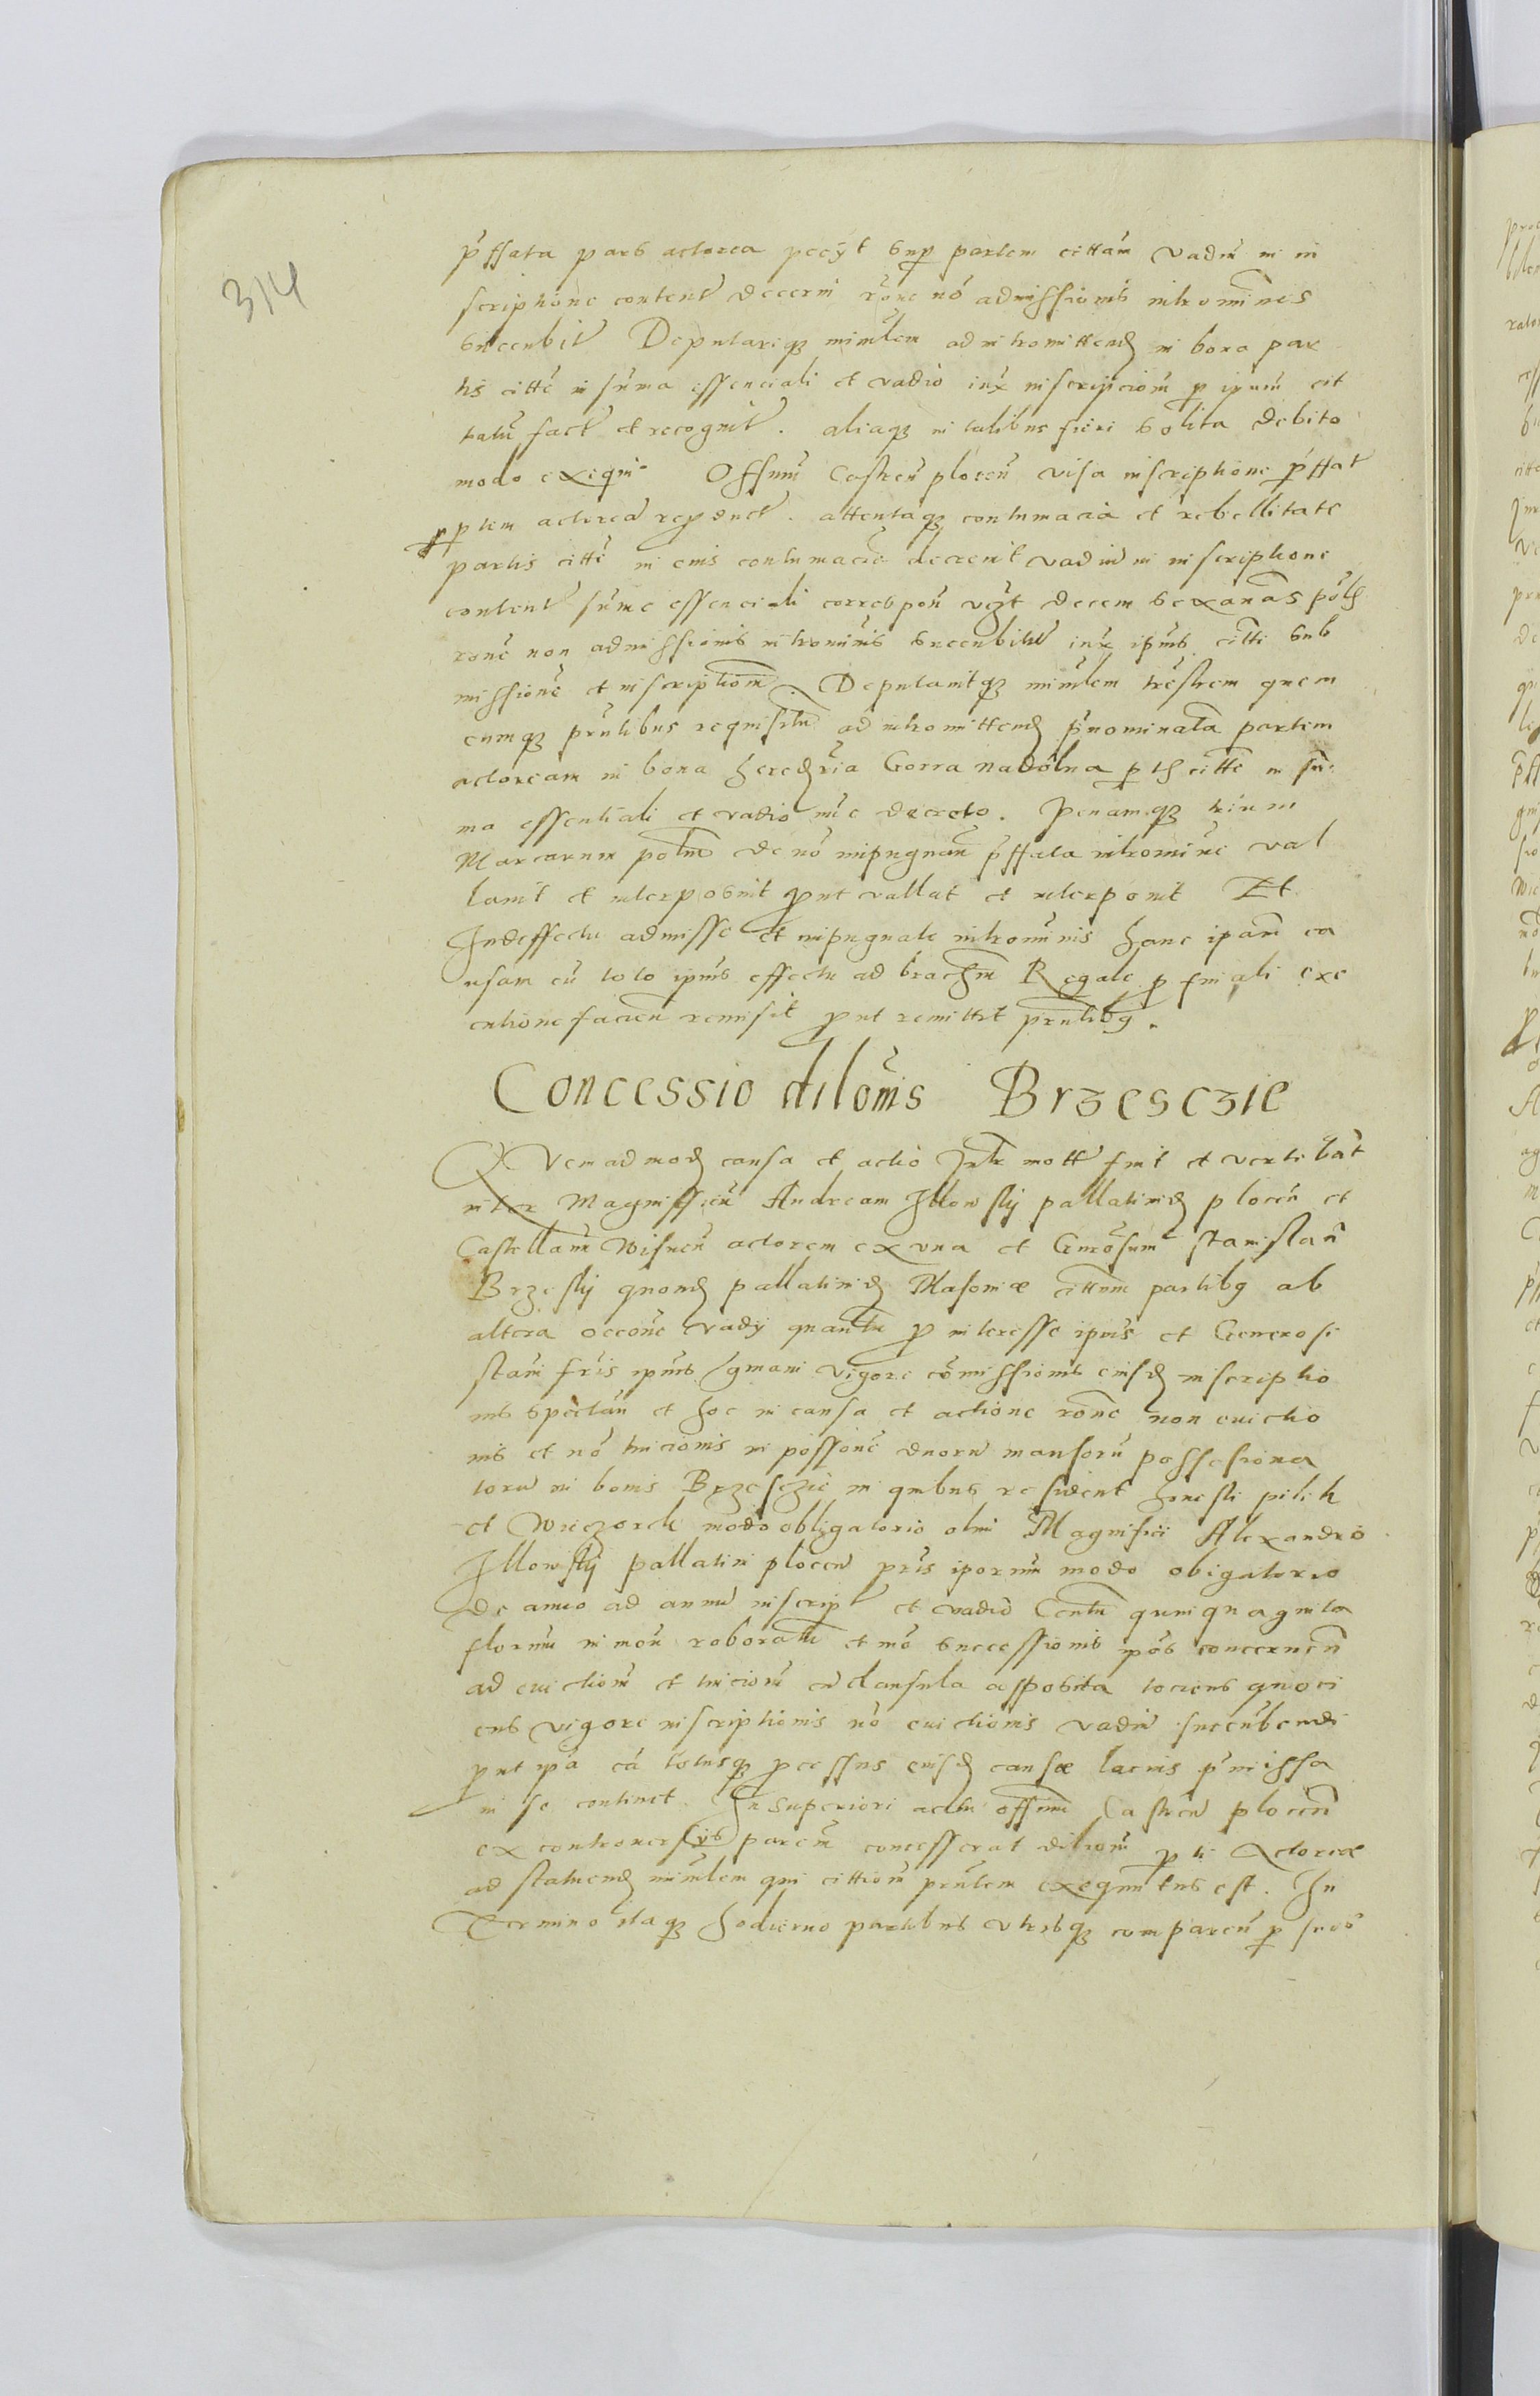 314
pffata pars actorea pecyt sup partem cittam vadiu in in
scriptione content decerni rone no admissionis intromines
sucenbit Deputariq minlem ad intromittend in bona par
tis citte in suma essenciali et vadio iux inscripciom p ipum cit
tatu fact et recognit . aliaq in talibus fieri solita debito
modo exequi Offium Castren plocen visa inscriptione pffat
p ptem actorea repduct . attentaq contumacia et rebellitate
partis citte in eius contumacia decrevit vadiu in inscriptione
content sume essenciali correspon vzt decem sexanas polh
rone non admissionis introminis sucenbitu iux ipius citti sub
missione et inscriptiom . Deputavitq minlem trestrem quem
cumq pntibus requisitu ad intromittend pnominata partem
actoream in bona heredria Gorra nadolna p th citte in su
ma essentiali et vadio nuc decreto . Penamq trium
Marcarum polne de no inpugnan pffata intromine val
lavit et interposuit put vallat et interponit Et
In deffectu admisse et inpugnate introminis hanc ipam ca
usam cu toto ipius effectu ad brachm Regale p finali exe
cutione facien remisit put remittit pntibg .
Concessio diloms Brzesczie
Qvemadmod causa et actio Intr mott fuit et vertibat
inter Magnifficu Andream Illowsky pallatinid plocen et
Castellanu Wisnen actorem ex vna et Genosum Stanislau
Brzesky quond pallatinid Masoviæ cittum partibg ab
altera occone vady quantu p interesse ipius et Generosi
Stani fris ipius gmani vigore comissionis eiusd inscriptio
nis spectan et hoc in causa et actione rone non euictio
nis et no tuicionis in possione duoru mansoru possesiona
toru in bonis Brzesczie in quibus resident honesti pilch
et Wieczorek modo obligatorio olim Magnifici Alexandro
Illowsky pallatini plocen pris ipornm modo obigatorio
de anno ad annu inscript et vadio Centu quinquaginta
flornm in mon roboratu et mo successionis ipos concernen
ad euictiom et tuiciom cu clausula apposita tociens quoci
ens vigore inscriptionis no euictionis vadiu sucenbendi
put ipa ca totusq pcessus eiusd causæ lacius pmissa
in se continet . In superiori actu offium Castren plocen
ex controuersys parcm concesserat dilrom p ti Actoriæ
ad statuend minlem qui cittiom pntem exequutus est . In
Termino itaq hodierno partibus vtrisq comparen p suos